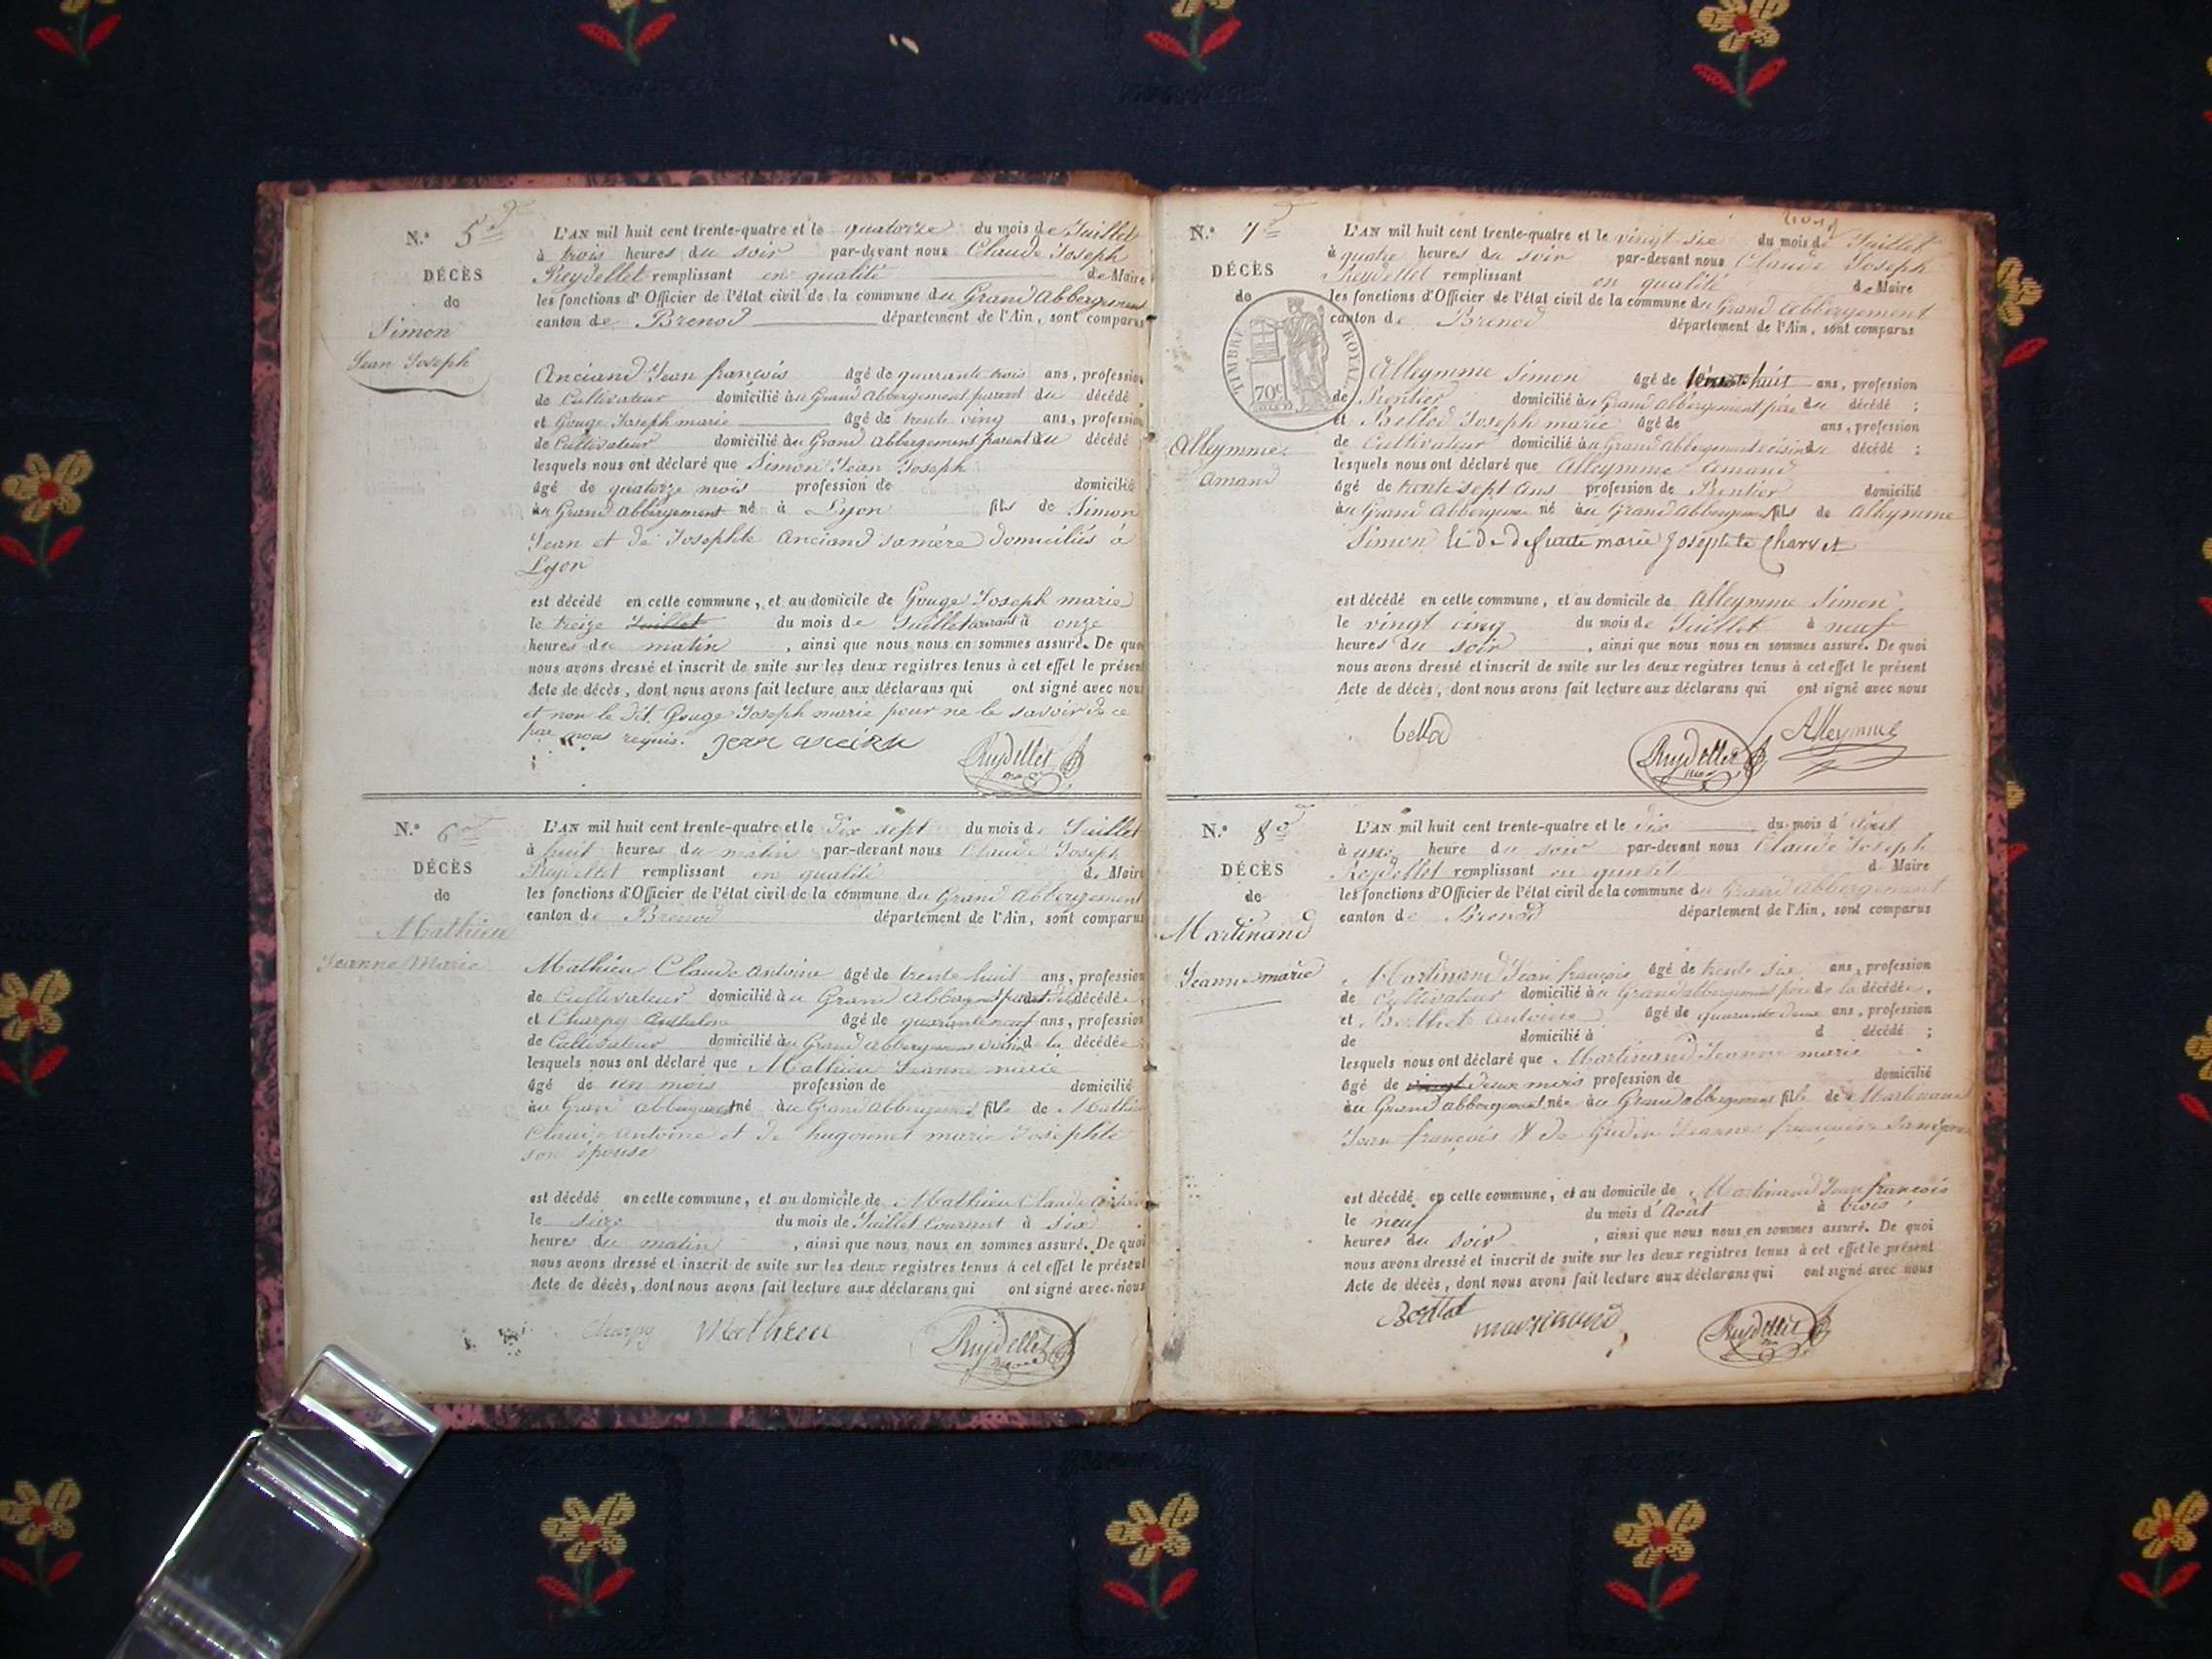 N.º 5
L'AN mil huit cent trente-quatre et le quatorze du mois de Juillet
à trois heures du soir par-devant nous Claude Joseph
DÉCÈS
Reydellet remplissant en qualité de Maire
de
les fonctions d'Officier de l'état civil de la commune du Grand Abbergement
Simon
canton de Brenod département de l'Ain, sont comparus
Jean Joseph
Anciand Jean françois âgé de quarante trois ans, profession
de Cultivateur domicilié au Grand Abbergement parent du décédé,
et Gouge Joseph marie âgé de trente cinq ans, profession
de Cultivateur domicilié au Grand Abbergement parent du décédé
lesquels nous ont déclaré que Simon Jean Joseph
âgé de quatorze mois profession de domicilié
au Grand Abbergement né à Lyon fils de Simon
Jean et de Josephte Anciand sa mère domiciliés à
Lyon
est décédé en cette commune, et au domicile de Gouge Joseph marie
le treize Juillet du mois de Juillet courant à onze
heures du matin, ainsi que nous nous en sommes assuré. De quoi
nous avons dressé et inscrit de suite sur les deux registres tenus à cet effet le présent
Acte de décès, dont nous avons fait lecture aux déclarans qui ont signé avec nous
et non le dit Gouge Joseph marie pour ne le savoir de ce
par nous requis. Jean Reydellet
N.º 6
L'AN mil huit cent trente-quatre et le dix sept du mois de Juillet
à huit heures du matin par-devant nous Claude Joseph
DÉCÈS
Reydellet remplissant en qualité de Maire
de
les fonctions d'Officier de l'état civil de la commune du Grand Abbergement
Mathieu
canton de Brenod département de l'Ain, sont comparus
Jeanne Marie
Mathieu Claude Antoine âgé de trente huit ans, profession
de Cultivateur domicilié au Grand décédée,
et Charpy âgé de quarante neuf ans, profession
de Cultivateur domicilié au Grand Abbergement voisin de la décédée
lesquels nous ont déclaré que Mathieu Jeanne marie
âgé de un mois profession de domicilié
au Grand Abbergement né au Grand Abbergement fille de Mathieu
Claude Antoine et de hugonnet marie Josephte
son épouse
est décédé en cette commune, et au domicile de Mathieu Claude Antoine
le seize du mois de Juillet courant à six
heures du matin, ainsi que nous nous en sommes assuré. De quoi
nous avons dressé et inscrit de suite sur les deux registres tenus à cet effet le présent
Acte de décès, dont nous avons fait lecture aux déclarans qui ont signé avec nous
Charpy Mathieu Reydellet
N.º 7
L'AN mil huit cent trente-quatre et le vingt six du mois de Juillet
à quatre heures du soir par-devant nous Claude Joseph
DÉCÈS
Reydellet remplissant en qualité de Maire
de
les fonctions d'Officier de l'état civil de la commune du Grand Abbergement
canton de Brenod département de l'Ain, sont comparus
TIMBRE ROYAL
70c
Alleymme Simon âgé de huit ans, profession
de Rentier domicilié au Grand Abbergement père du décédé ;
et Bellod Joseph marie âgé de ans, profession
de Cultivateur domicilié au Grand Abbergement voisin du décédé ;
Alleymme
lesquels nous ont déclaré que Alleymme Amand
Amand
âgé de trente sept ans profession de Rentier domicilié
au Grand Abbergement né au Grand Abbergement fils de Alleymme
Simon de défunte marie Josephte Charvet
est décédé en cette commune, et au domicile de Alleymme Simon
le vingt cinq du mois de Juillet à neuf
heures du soir, ainsi que nous nous en sommes assuré. De quoi
nous avons dressé et inscrit de suite sur les deux registres tenus à cet effet le présent
Acte de décès, dont nous avons fait lecture aux déclarans qui ont signé avec nous
bellod Reydellet Alleymme
N.º 8
L'AN mil huit cent trente-quatre et le dix du mois d'Aout
à heure du soir par-devant nous Claude Joseph
DÉCÈS
Reydellet remplissant en qualité de Maire
de
les fonctions d'Officier de l'état civil de la commune du Grand Abbergement
Martinand
canton de Brenod département de l'Ain, sont comparus
Jeanne marie
Martinand Jean françois âgé de trente six ans, profession
de Cultivateur domicilié au Grand abbergement père de la décédée.
et Berthet Antoine âgé de quarante deux ans, profession
de domicilié à d décédé ;
lesquels nous ont déclaré que Martinand Jeanne marie
âgé de vingt deux mois profession de domicilié
au Grand abbergement née au Grand abbergement fille de Martinand
Jean françois & de Jeanne françoise
est décédé en cette commune, et au domicile de Martinand Jean françois
le neuf du mois d'Août à trois
heures du soir, ainsi que nous nous en sommes assuré. De quoi
nous avons dressé et inscrit de suite sur les deux registres tenus à cet effet le présent
Acte de décès, dont nous avons fait lecture aux déclarans qui ont signé avec nous
Berthet martinand Reydellet